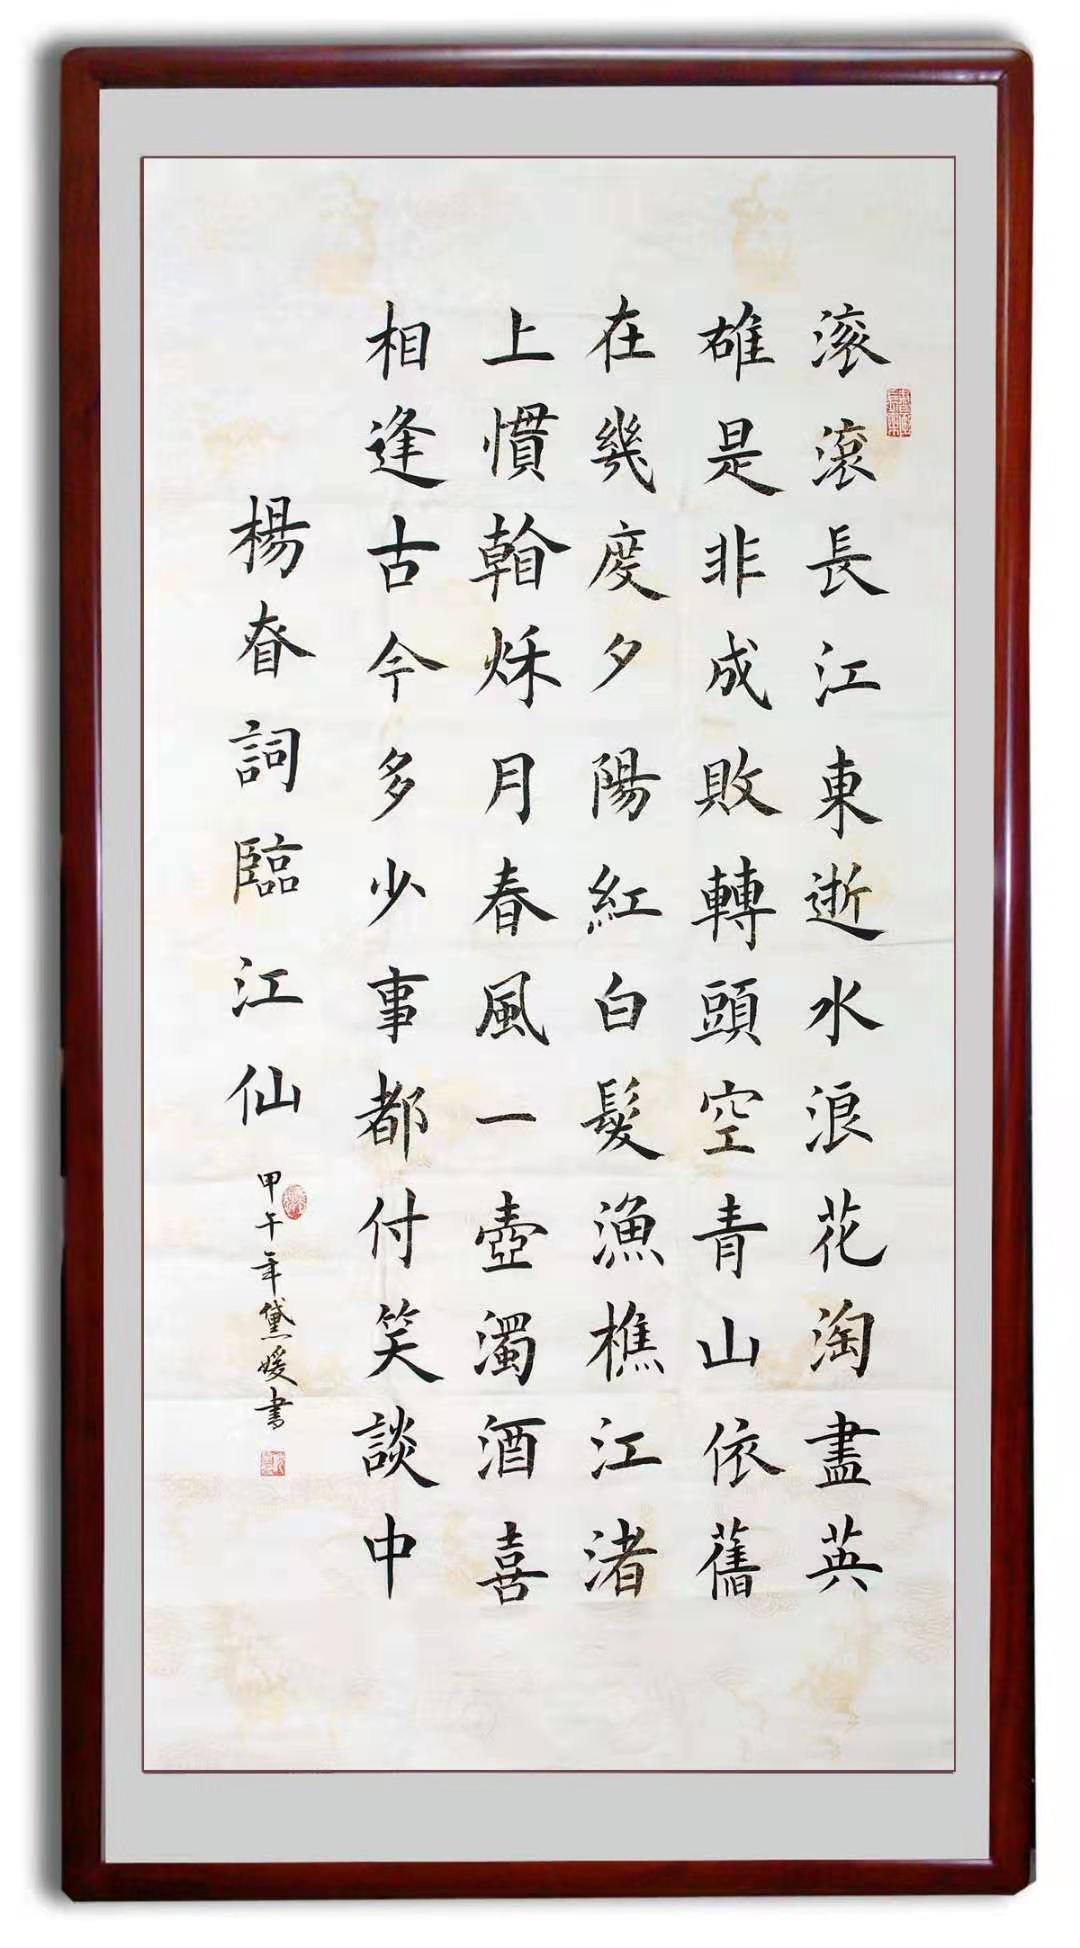 滚滚長江東逝水浪花淘盡英
雄是非成敗轉頭空青山依舊
在幾度夕陽紅白髮漁樵江渚
上慣看秌月春風一壺濁酒喜
相逢古今多少事都付笑談中
楊眘詞臨江仙
甲午年黛媛書